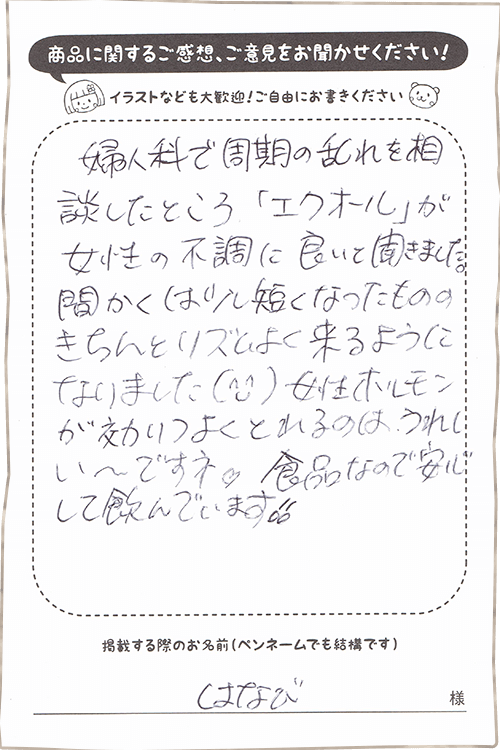 商品に関するご感想、ご意見をお聞かせください！
イラストなども大歓迎！ご自由にお書きください
婦人科で周期の乱れを相
談したところ「エクオール」が
女性の不調に良いと聞きました。
間かくは少し短くなったものの
きちんとリズムよく来るように
なりました(^^) 女性ホルモン
が効りつよくとれるのは、うれし
い〜ですネ。食品なので安心
して飲んでいます♪♪
掲載する際のお名前(ペンネームでも結構です)
はなび 様